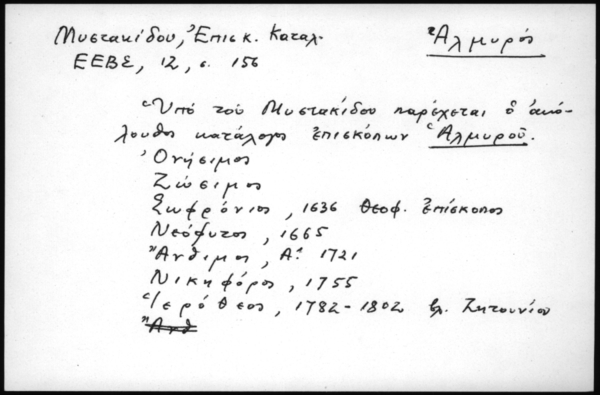 Μυστακίδου, Ἐπισκ. Καταλ. Ἁλμυρός
ΕΕΒΣ, 12, σ. 156
Ὑπό τοῦ Μυστακίδου παρέχεται ὁ ἀκό-
λουθος κατάλογος ἐπισκόπων Ἁλμυροῦ.
Ὀνήσιμος
Ζώσιμος
Σωφρόνιος, 1636 Θεοφ. ἐπίσκοπος
Νεόφυτος, 1665
Ἄνθιμος, Α! 1721
Νικηφόρος, 1755
Ἱερόθεος, 1782-1802 βλ. Ζητουνίου
Ἄνθ